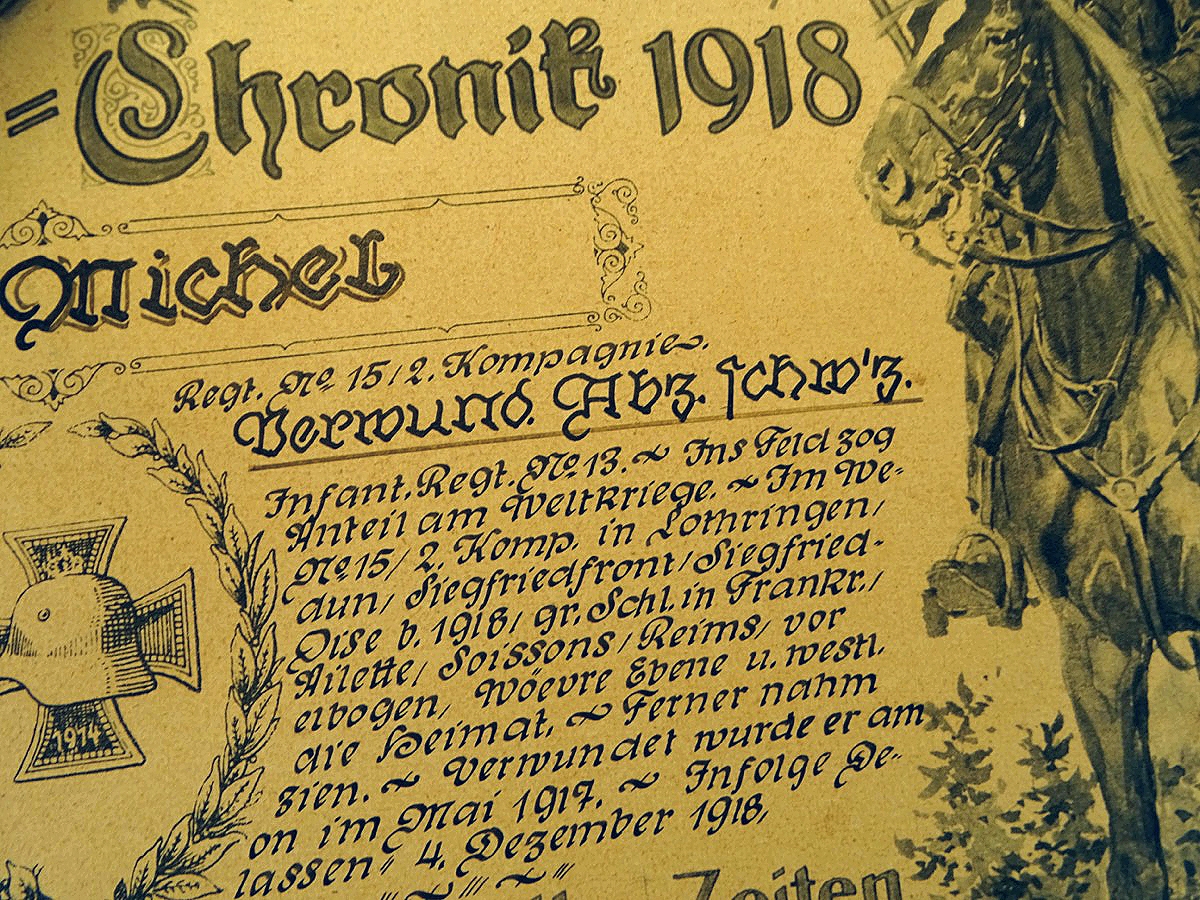 = Chronik 1918
Michel
Regt. No. 15/2. Kompagnie.
Verwund. Abz. schw'z.
Infant. Regt. No. 13. ~ Ins Feld zog
Anteil am Weltkriege. ~ Im We-
No. 15/2. Komp. in Lothringen/
dun/ Siegfriedfront/ Siegfried-
Oise b. 1918/ gr. Schl. in Frankr./
Ailette/ Soissons/ Reims/ vor
elbogen/ Wöevre Ebene u. westl.
die Heimat. ~ Ferner nahm
zien. ~ Verwundet wurde er am
on im Mai 1917. ~ Infolge De-
lassen" 4. Dezember 1918.
1914
Zeiten